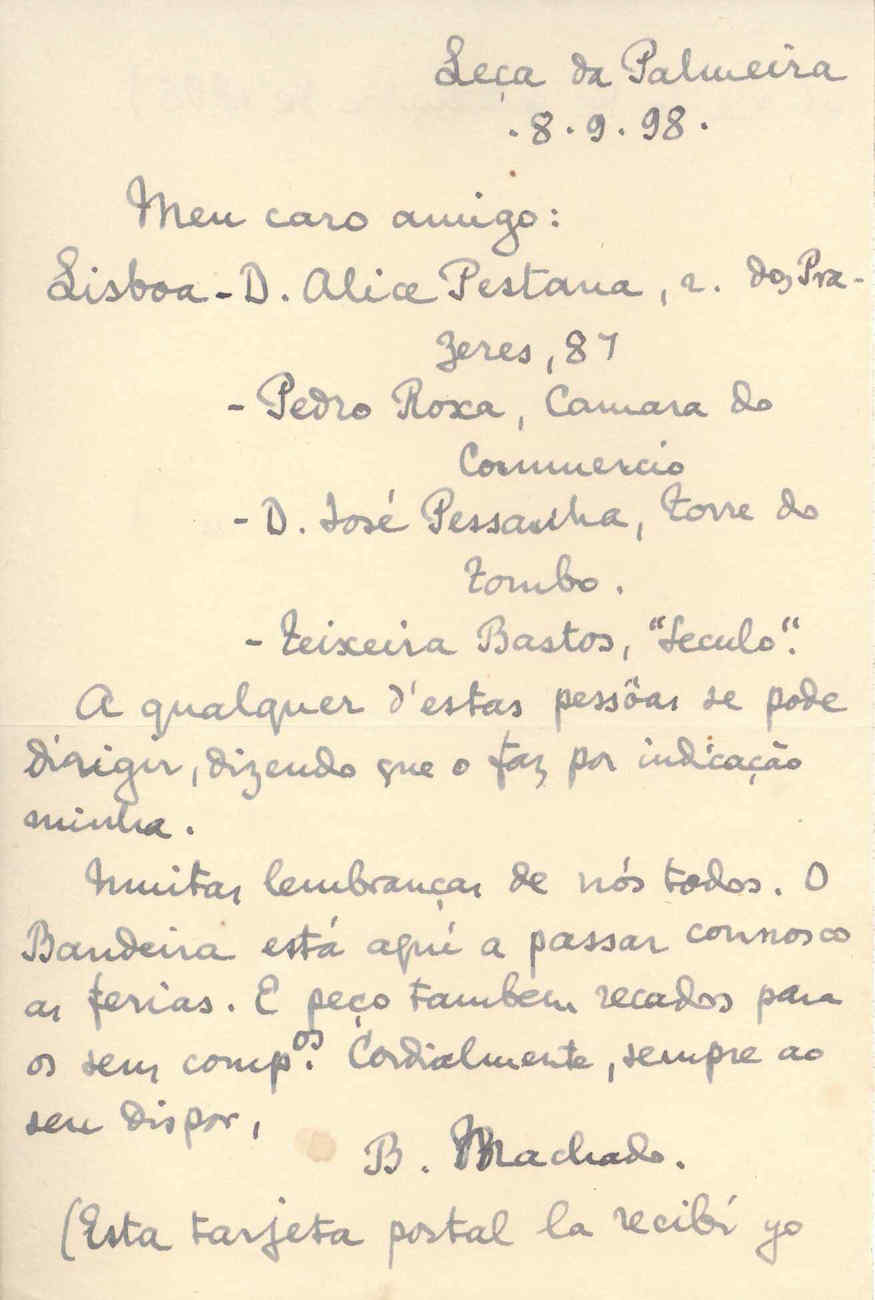 Leça da Palmeira
.8.9.98.
Meu caro amigo:
Lisboa - D. Alice Pestana, r. dos Pra-
zeres, 87
- Pedro Roxa, Camara do
Commercio
- D. José Pessanha, Torre do
Tombo.
- Teixeira Bastos, "Seculo".
A qualquer d'estas pessôas se pode
dirigir, dizendo que o faz por indicação
minha.
Muitas lembranças de nós todos. O
Bandeira está aquí a passar connosco
as ferias. E peço tambem recados para
os seus comp.os Cordialmente, sempre ao
seu dispor,
B. Machado.
(Esta tarjeta postal la recibí yo